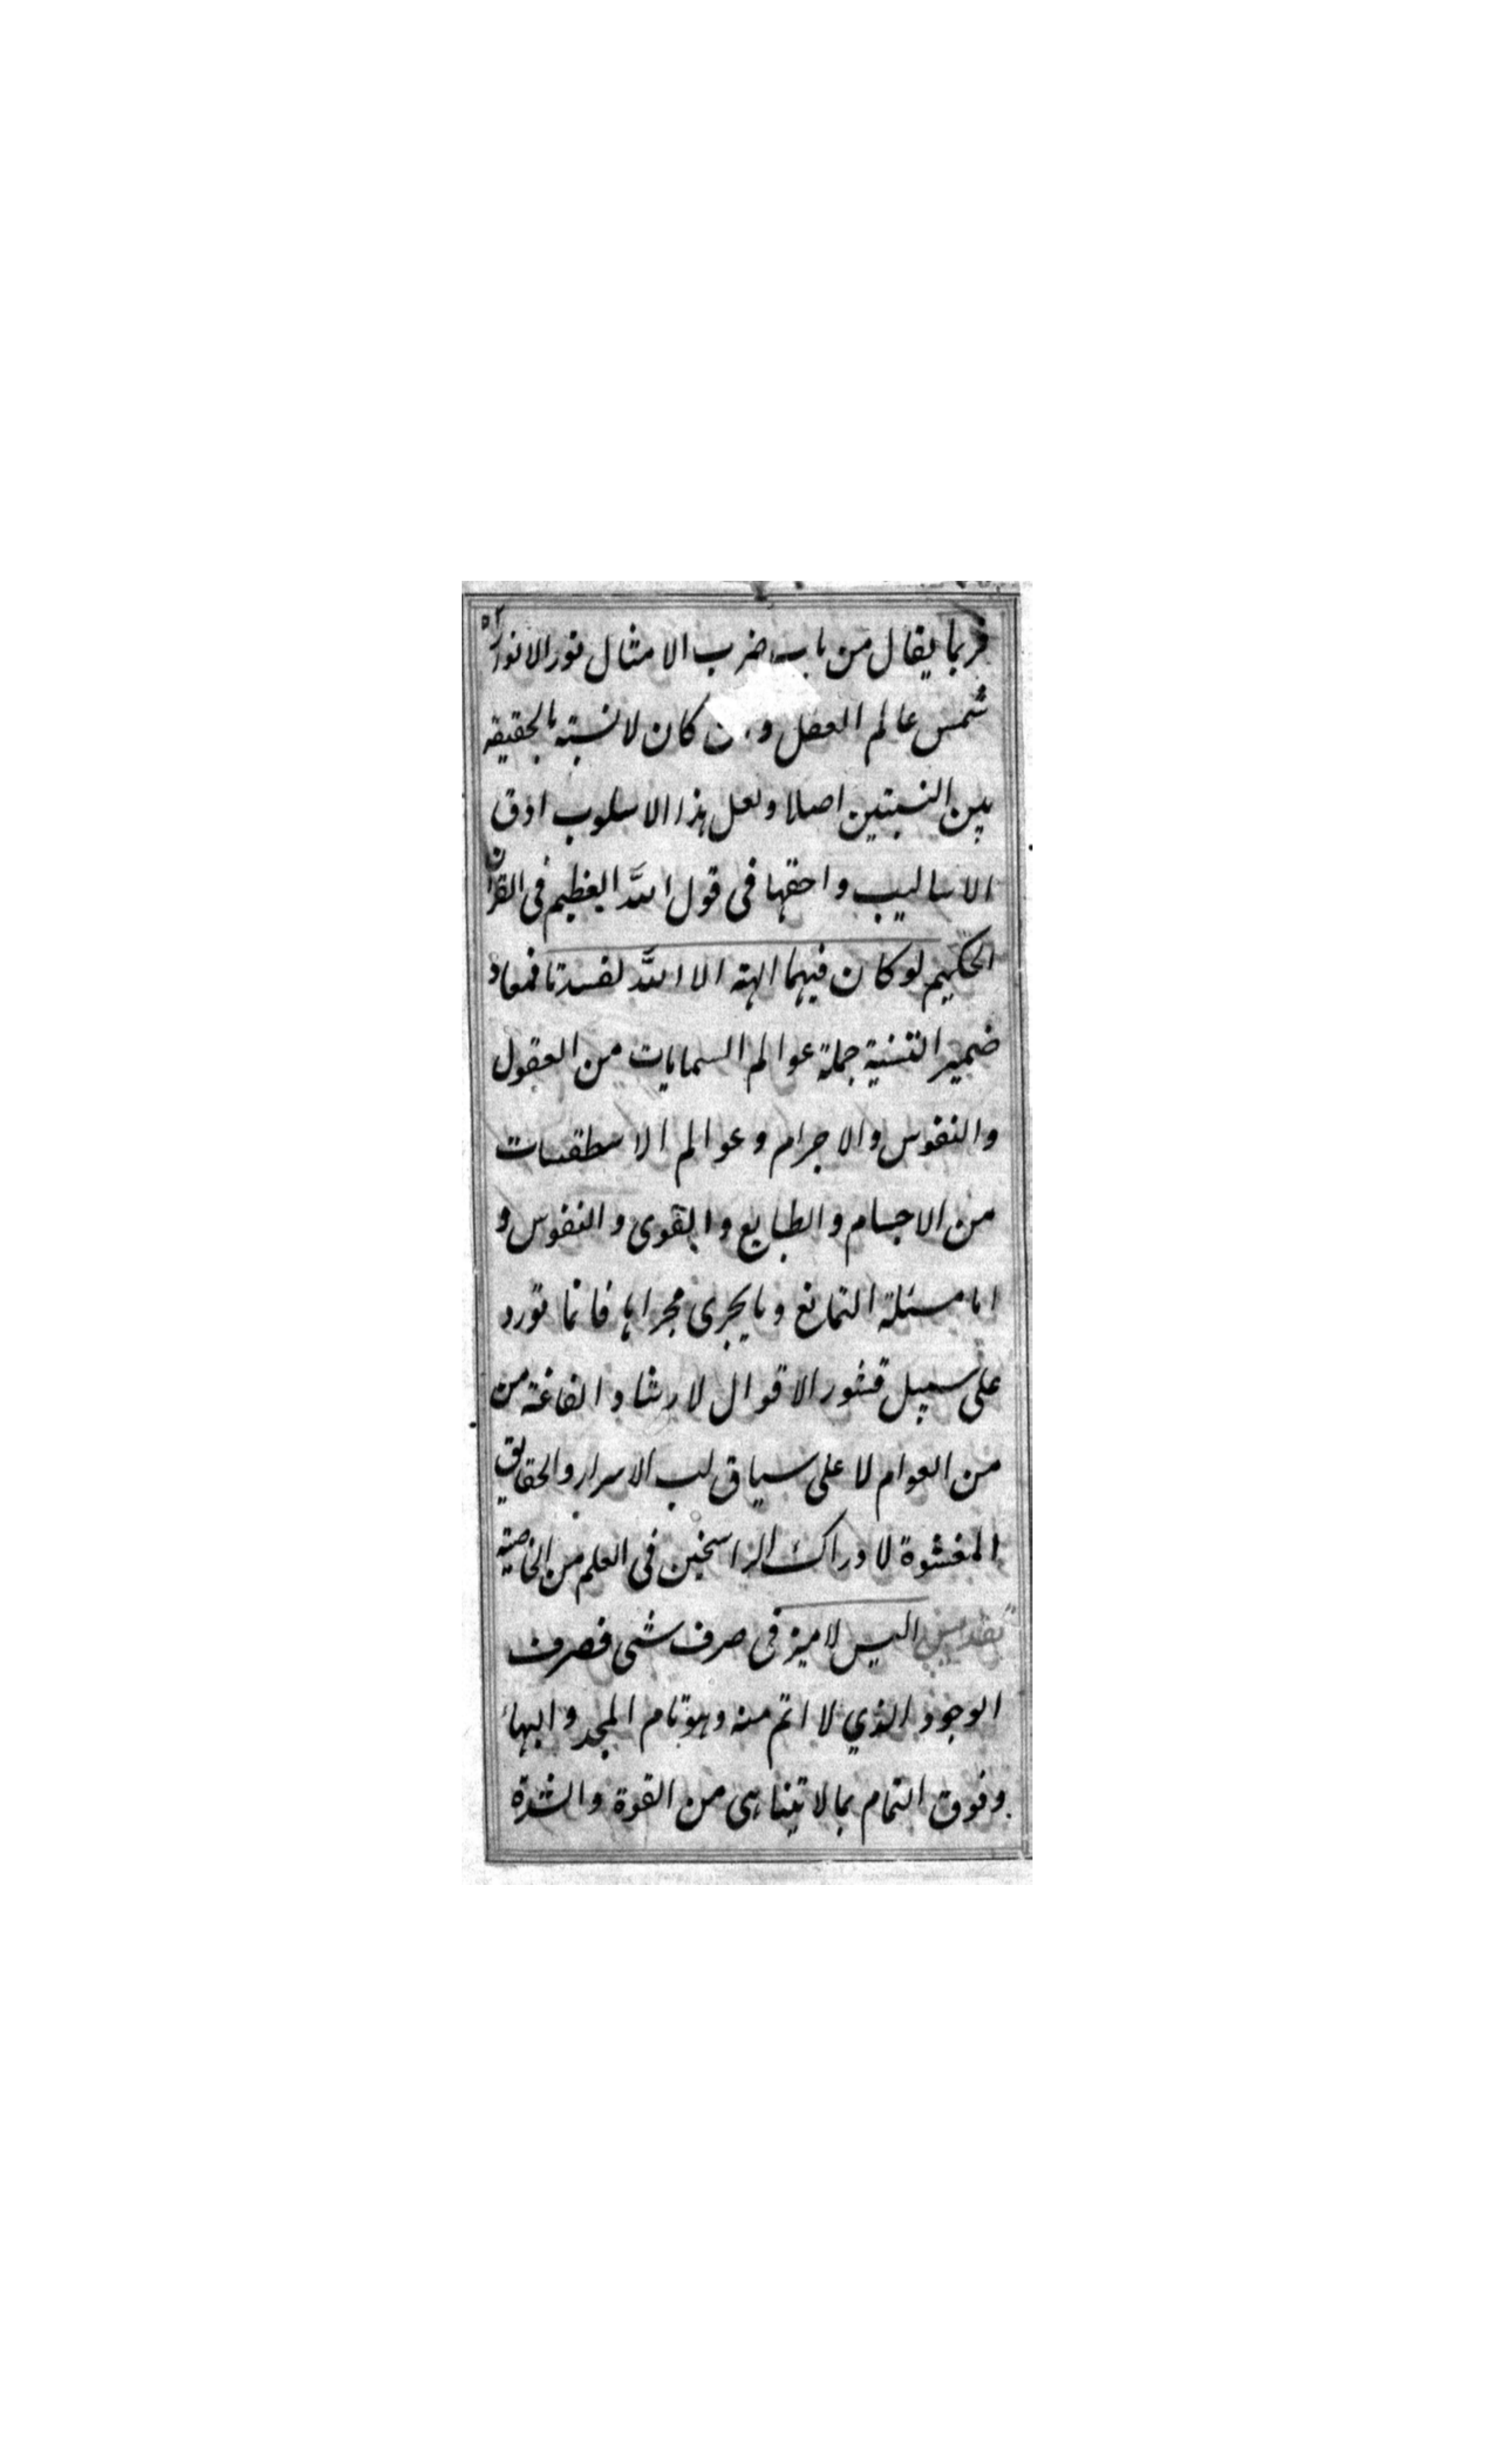 ۵۲
فربما يقال من باب ضرب الامثال نور الانوار
شمس عالم العقل و كان لا نسبة بالحقيقه
بين النسبتين اصلا ولعل هذا الاسلوب ادق
الاساليب واحقها فى قول الله العظيم فى القرآن
الحكيم لو كان فيهما الهة الا الله لفسدتا فمعاد
ضمير التثنية جملة عوالم السمايات من العقول
والنفوس والاجرام وعوالم الاسطقسات
من الاجسام والطبايع والقوى والنفوس و
اما مسئلة التمانع وما يجرى مجراها فانما تورد
على سبيل قشور الاقوال لارشاد الفاغة من
من العوام لا على سياق لب الاسرار والحقايق
المغشوة لادراك الراسخين فى العلم من الخاصية
تقديس اليس لا ميز فى صرف شى فصرف
الوجود الذي لا اتم منه وهو تام المجد والبهاء
وفوق التمام بما لا يتناهى من القوة والشدة